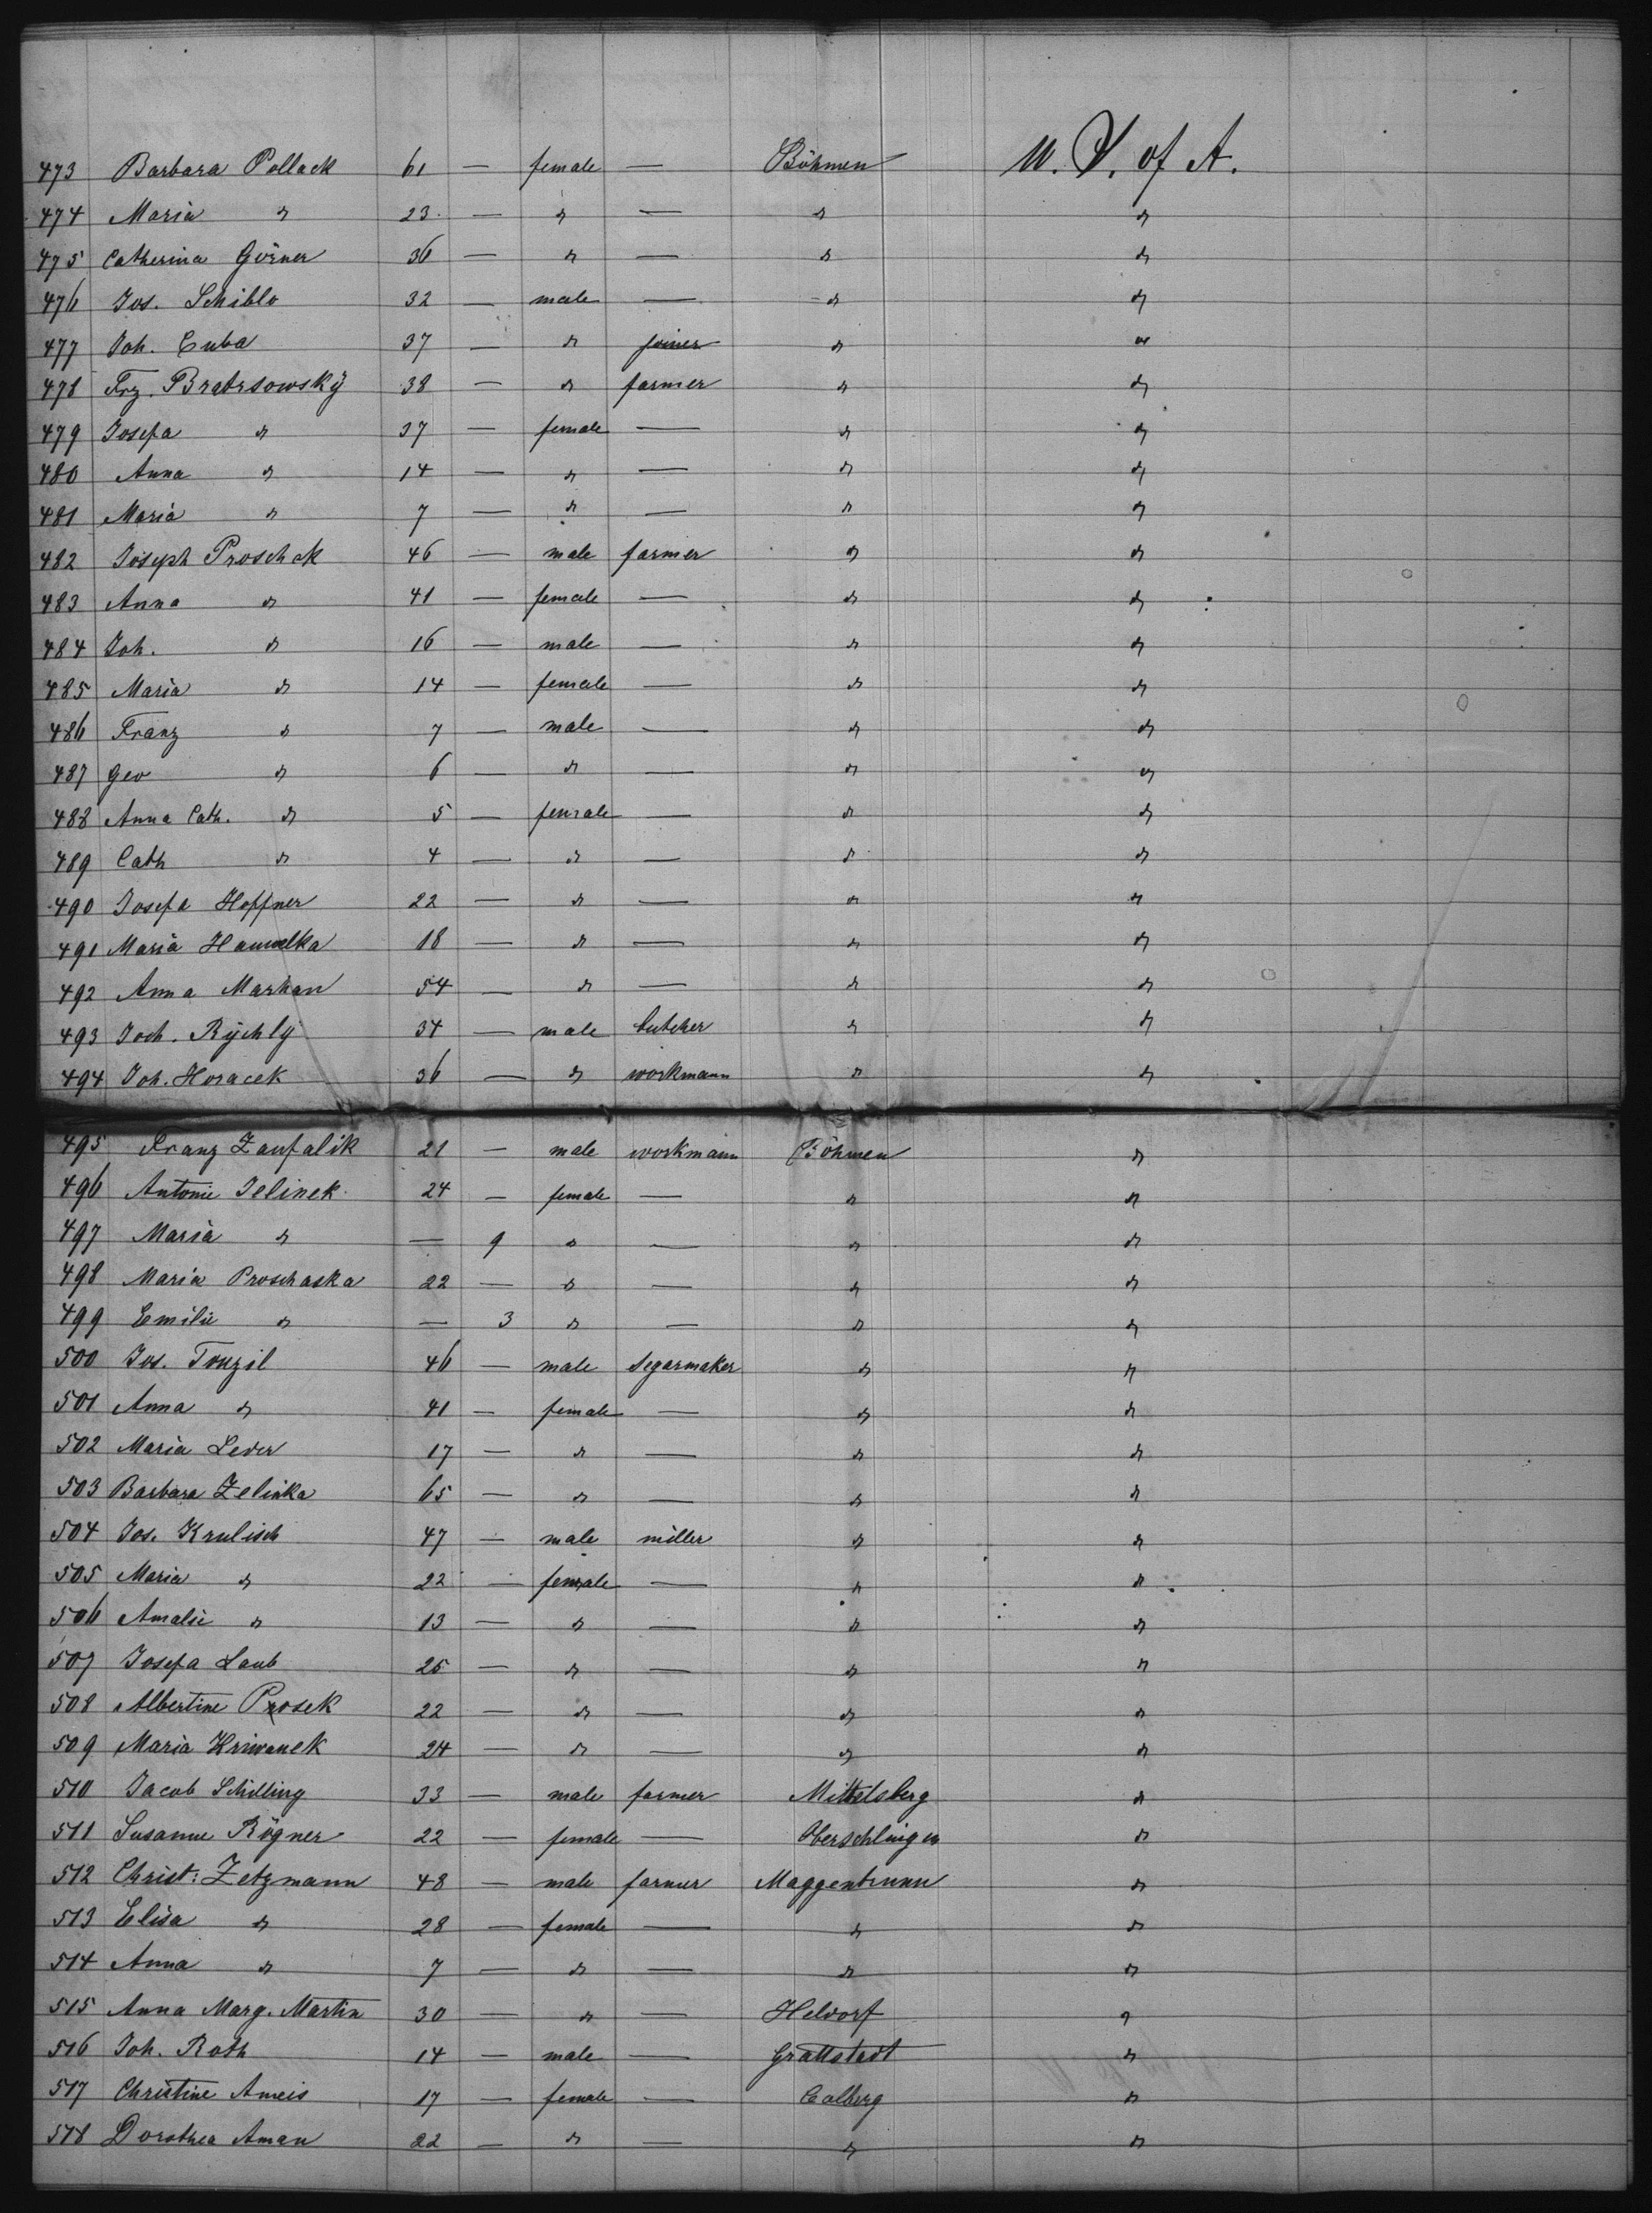 473 Barbara Pollack 61 — female — Böhmen U. S. of A.
474 Maria " 23 — " — " "
475 Catherina Görner 36 — " — " "
476 Jos. Schiblo 32 — male — " "
477 Joh. Cuba 37 — " joiner " "
478 Frz. Bratrsowský 38 — " farmer " "
479 Josefa " 37 — female — " "
480 Anna " 14 — " — " "
481 Maria " 7 — " — " "
482 Joseph Proschek 46 — male farmer " "
483 Anna " 41 — female — " "
484 Joh. " 16 — male — " "
485 Maria " 14 — female — " "
486 Franz " 7 — male — " "
487 Geo " 6 — " — " "
488 Anna Cath. " 5 — female — " "
489 Cath " 4 — " — " "
490 Josefa Hoffner 22 — " — " "
491 Maria 18 — " — " "
492 Anna Markan 54 — " — " "
493 Joh. Rychly 34 — male butcher " "
494 Joh. Horacek 36 — " workmann " "
495 Franz Zaufalik 21 — male workmann Böhmen "
496 Antonie Jelinek 24 — female — " "
497 Maria " — 9 " — " "
498 Maria Proschaska 22 — " — " "
499 Emilie " — 3 " — " "
500 Jos. Touzil 46 — male segarmaker " "
501 Anna " 41 — female — " "
502 Maria Leder 17 — " — " "
503 Barbara Zelinka 65 — " — " "
504 Jos. Krulisch 47 — male miller " "
505 Maria " 22 — female — " "
506 Amalie " 13 — " — " "
507 Josefa Laub 25 — " — " "
508 Albertine Prosek 22 — " — " "
509 Maria Kriwanek 24 — " — " "
510 Jacob Schilling 33 — male farmer Mittelsberg "
511 Susanne Rögner 22 — female — Oberschlingen "
512 Christ: Zetzmann 48 — male farmer Maggenbrunn "
513 Elisa " 28 — female — " "
514 Anna " 7 — " — " "
515 Anna Marg. Martin 30 — " — Heldorf "
516 Joh. Roth 14 — male — Grattstadt "
517 Christine Ameis 17 — female — Colberg "
518 Dorothea Aman 22 — " — " "